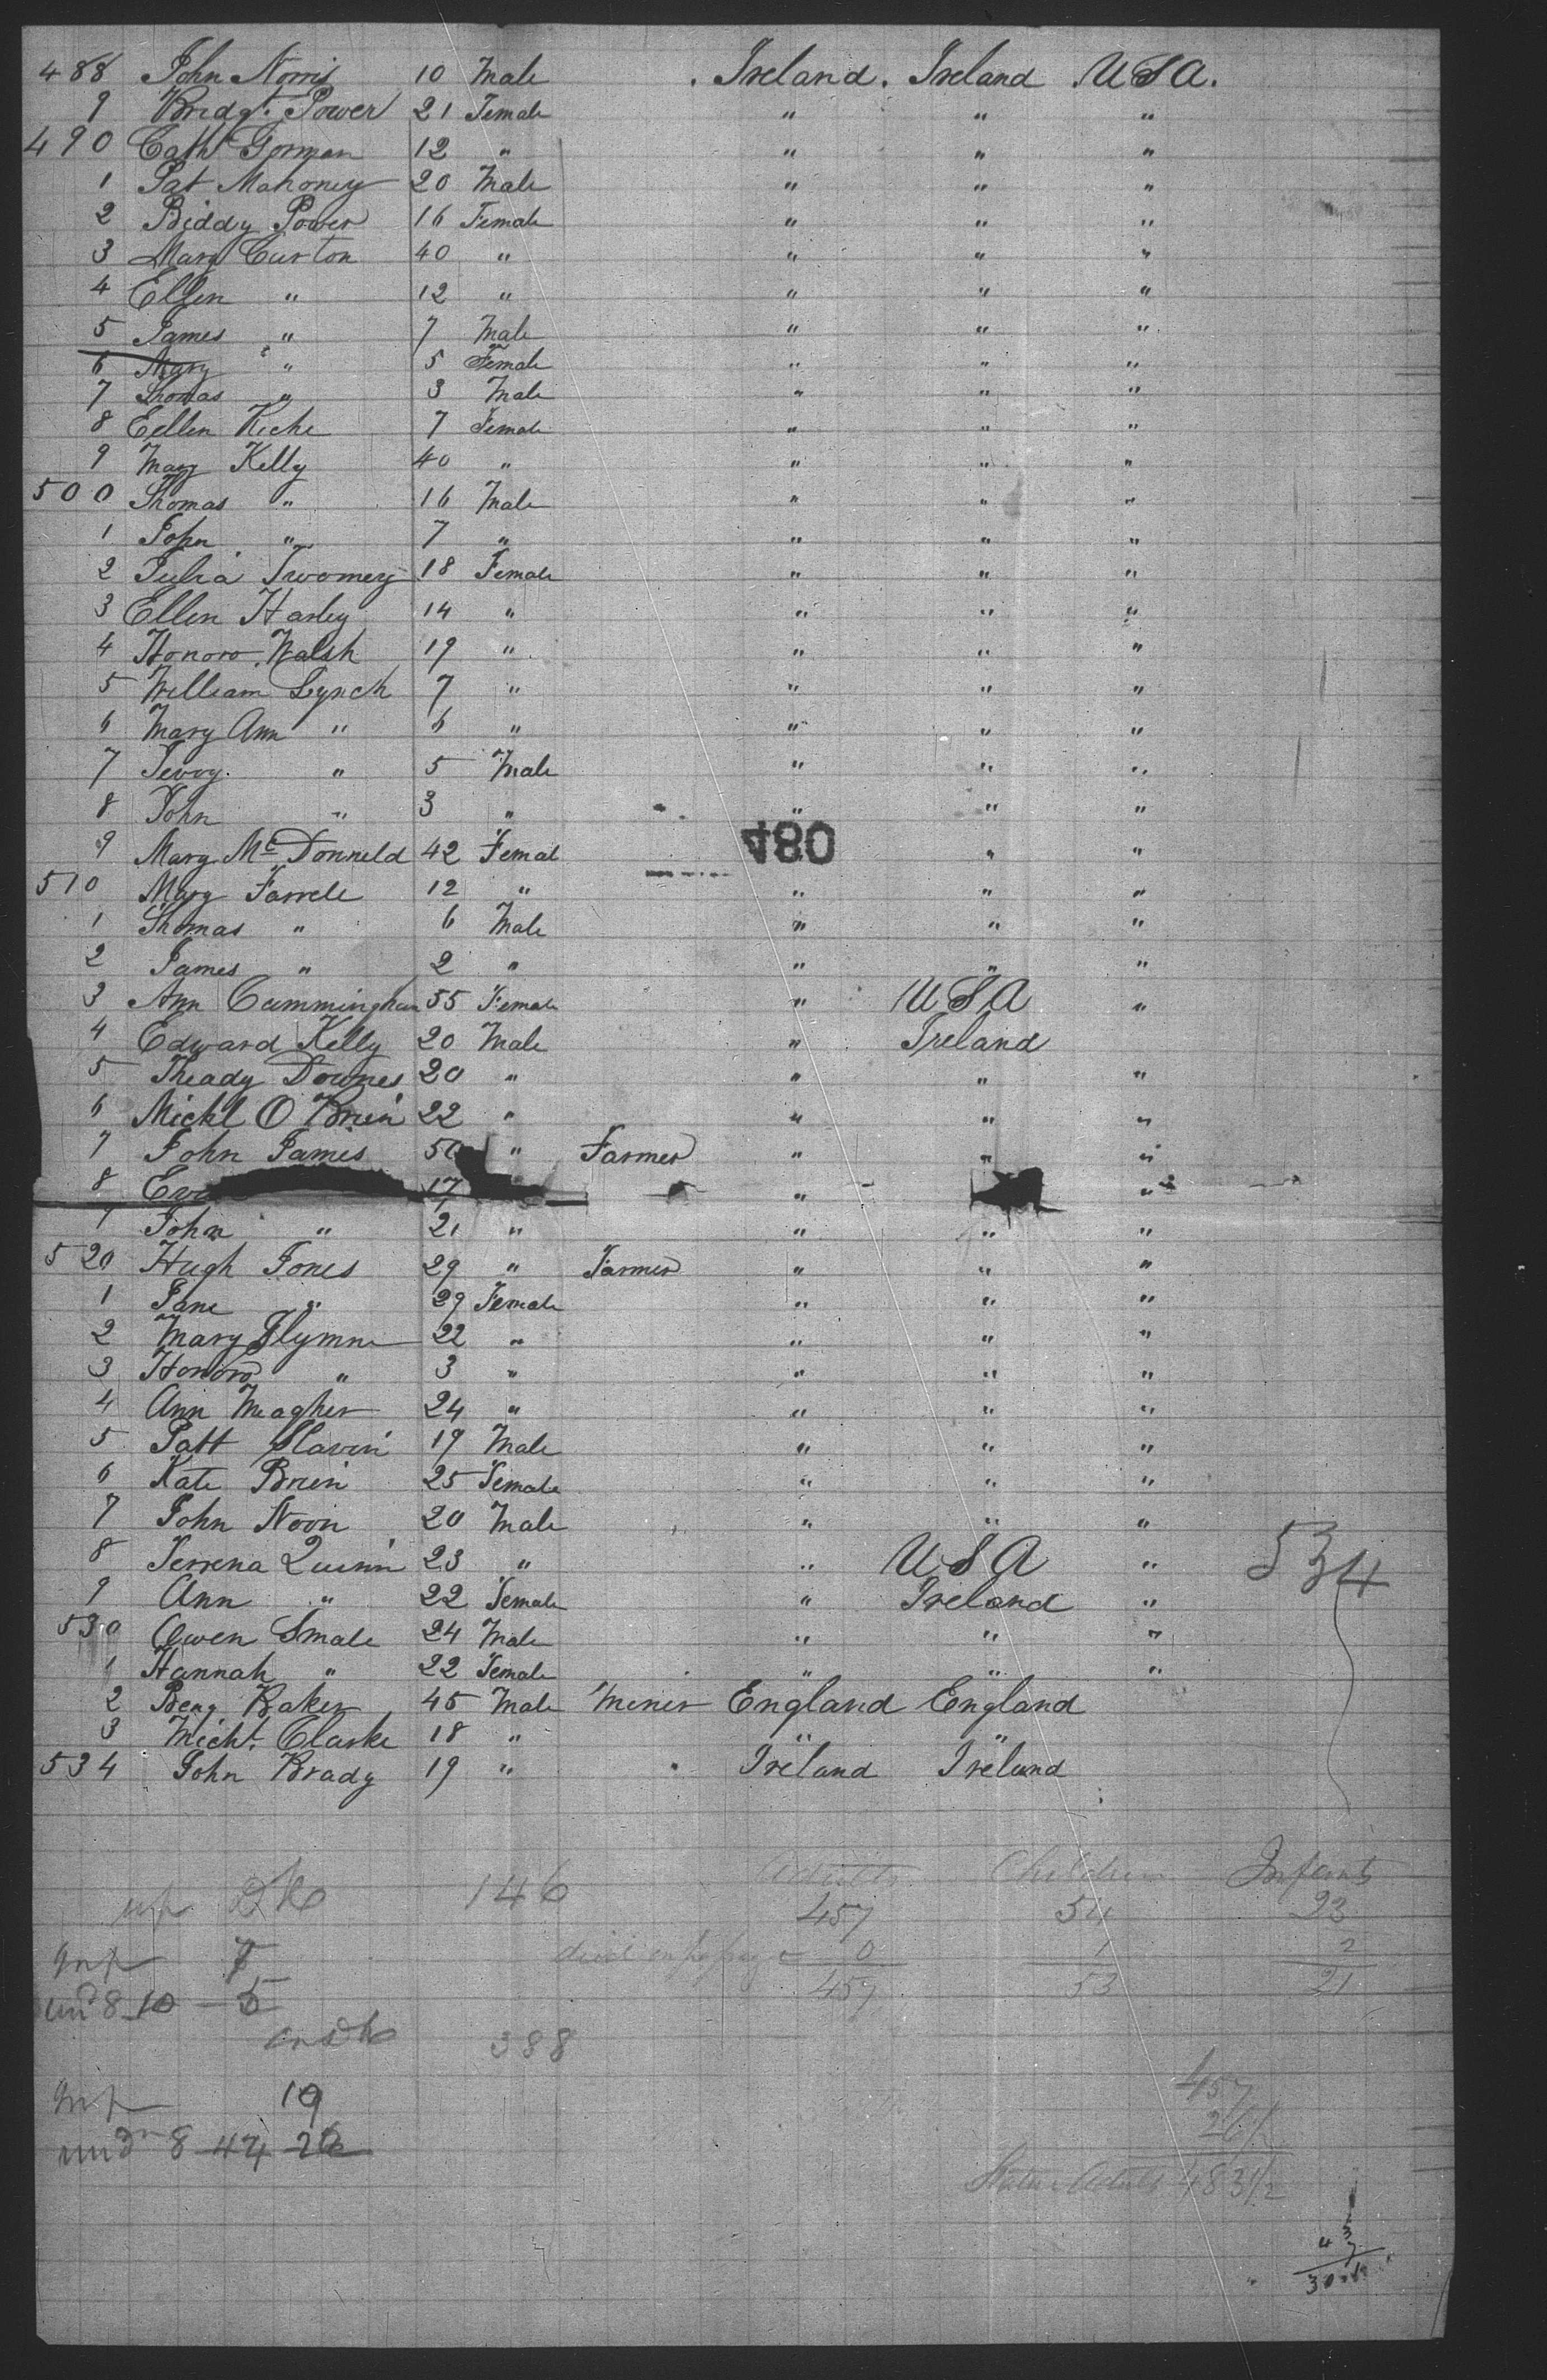 488 John Norris 10 Male . Ireland . Ireland . USA .
9 Bridgt. Power 21 Female " " "
490 Cath Gorman 12 " " " "
1 Pat Mahoney 20 Male " " "
2 Biddy Power 16 Female " " "
3 Mary Curton 40 " " " "
4 Ellen " 12 " " " "
5 James " 7 Male " " "
6 Mary " 5 Female " " "
7 Thomas " 3 Male " " "
8 Eellen 7 Female " " "
9 Mary Kelly 40 " " " "
500 Thomas " 16 Male " " "
1 John " 7 " " " "
2 Julia Twomey 18 Female " " "
3 Ellen Harley 14 " " " "
4 Honoro Walsh 19 " " " "
5 William Lynch 7 " " " "
6 Mary Ann " 6 " " " "
7 " 5 Male " " "
8 John " 3 " " " "
480
9 Mary Mc Donneld 42 Femal " "
510 Mary Farrele 12 " " " "
1 Thomas " 6 Male " " "
2 James " 2 " " " "
3 Ann Cummingham 55 Female " USA "
4 Edward Kelly 20 Male " Ireland
5 Theady Downes 20 " " " "
6 Michl O Brien 22 " " " "
7 John James 50 " Farmer " " "
8 17 " "
9 John " 21 " " " "
520 Hugh Jones 29 " Farmer " " "
1 Jane " 29 Female " " "
2 Mary Flymn 22 " " " "
3 Honoro " 3 " " " "
4 Ann Meagher 24 " " " "
5 Patt Slavin 19 Male " " "
6 Kate Brien 25 Female " " "
7 John Noon 20 Male " " "
8 Terrena Quinn 23 " " USA " 534
9 Ann " 22 Female " Ireland "
530 Owen Smale 24 Male " " "
1 Hannah " 22 Female " " "
2 Benj Baker 45 Male Miner England England
3 Micht. Clarke 18 " " "
534 John Brady 19 " " Ireland Ireland
Adults Children Infants
up Dk 146 457 54 23
7 0 1 2
und 8 10 5 457 53 21
on Dk 388
19 457
undr 8 26½
Statu Adults 483½